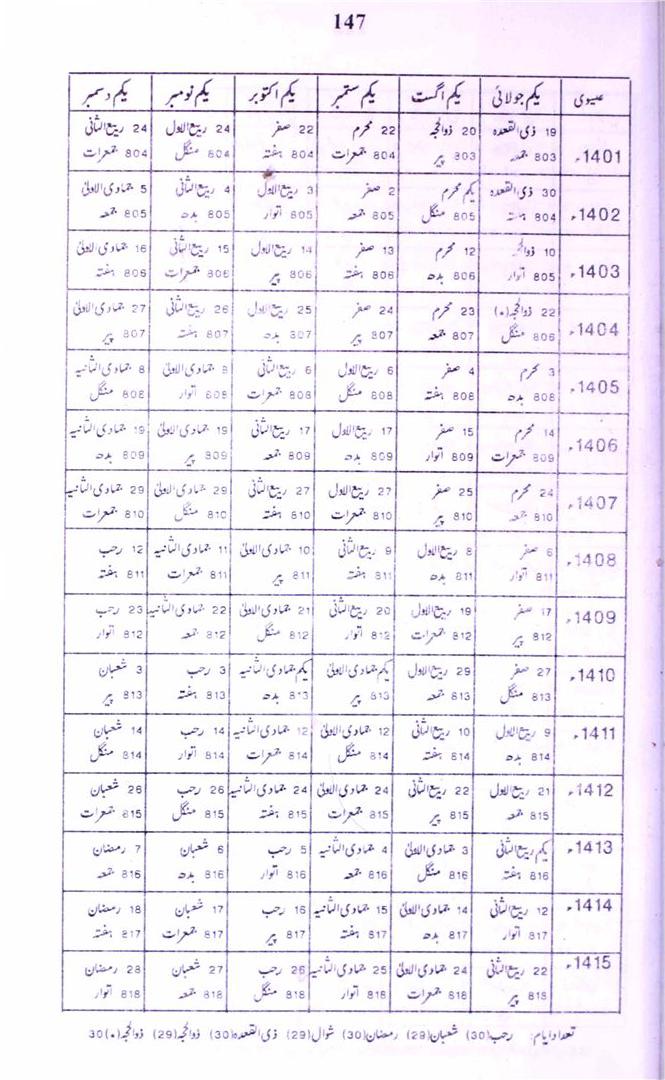 147
عیسوی یکم جولائی یکم اگست یکم ستمبر یکم اکتوبر یکم نومبر یکم دسمبر
1401ء 19 ذی القعدہ 20 ذوالحجہ 22 محرم 22 صفر 24 ربیع الاول 24 ربیع الثانی
803 جمعہ 803 پیر 804 جمعرات 804 ہفتہ 804 منگل 804 جمعرات
1402ء 30 ذی القعدہ یکم محرم 2 صفر 3 ربیع الاول 4 ربیع الثانی 5 جمادی الاولیٰ
804 ہفتہ 805 منگل 805 جمعہ 805 اتوار 805 بدھ 805 جمعہ
1403ء 10 ذوالحجہ 12 محرم 13 صفر 14 ربیع الاول 15 ربیع الثانی 16 جمادی الاولیٰ
805 اتوار 806 بدھ 806 ہفتہ 806 پیر 806 جمعرات 806 ہفتہ
1404ء 22 ذوالحجہ(٭) 23 محرم 24 صفر 25 ربیع الاول 26 ربیع الثانی 27 جمادی الاولیٰ
806 منگل 807 جمعہ 807 پیر 807 بدھ 807 ہفتہ 807 پیر
1405ء 3 محرم 4 صفر 6 ربیع الاول 6 ربیع الثانی 8 جمادی الاولیٰ 8 جمادی الثانیہ
808 بدھ 808 ہفتہ 808 منگل 808 جمعرات 808 اتوار 808 منگل
1406ء 14 محرم 15 صفر 17 ربیع الاول 17 ربیع الثانی 19 جمادی الاولیٰ 19 جمادی الثانیہ
809 جمعرات 809 اتوار 809 بدھ 809 جمعہ 809 پیر 809 بدھ
1407ء 24 محرم 25 صفر 27 ربیع الاول 27 ربیع الثانی 29 جمادی الاولیٰ 29 جمادی الثانیہ
810 جمعہ 810 پیر 810 جمعرات 810 ہفتہ 810 منگل 810 جمعرات
1408ء 6 صفر 8 ربیع الاول 9 ربیع الثانی 10 جمادی الاولیٰ 11 جمادی الثانیہ 12 رجب
811 اتوار 811 بدھ 811 ہفتہ 811 پیر 811 جمعرات 811 ہفتہ
1409ء 17 صفر 19 ربیع الاول 20 ربیع الثانی 21 جمادی الاولیٰ 22 جمادی الثانیہ 23 رجب
812 پیر 812 جمعرات 812 اتوار 812 منگل 812 جمعہ 812 اتوار
1410ء 27 صفر 29 ربیع الاول یکم جمادی الاولیٰ یکم جمادی الثانیہ 3 رجب 3 شعبان
813 منگل 813 جمعہ 813 پیر 813 بدھ 813 ہفتہ 813 پیر
1411ء 9 ربیع الاول 10 ربیع الثانی 12 جمادی الاولیٰ 12 جمادی الثانیہ 14 رجب 14 شعبان
814 بدھ 814 ہفتہ 814 منگل 814 جمعرات 814 اتوار 814 منگل
1412ء 21 ربیع الاول 22 ربیع الثانی 24 جمادی الاولیٰ 24 جمادی الثانیہ 26 رجب 26 شعبان
815 جمعہ 815 پیر 815 جمعرات 815 ہفتہ 815 منگل 815 جمعرات
1413ء یکم ربیع الثانی 3 جمادی الاولیٰ 4 جمادی الثانیہ 5 رجب 6 شعبان 7 رمضان
816 ہفتہ 816 منگل 816 جمعہ 816 اتوار 816 بدھ 816 جمعہ
1414ء 12 ربیع الثانی 14 جمادی الاولیٰ 15 جمادی الثانیہ 16 رجب 17 شعبان 18 رمضان
817 اتوار 817 بدھ 817 ہفتہ 817 پیر 817 جمعرات 817 ہفتہ
1415ء 22 ربیع الثانی 24 جمادی الاولیٰ 25 جمادی الثانیہ 26 رجب 27 شعبان 28 رمضان
818 پیر 818 جمعرات 818 اتوار 818 منگل 818 جمعہ 818 اتوار
تعداد ایام: رجب(30) شعبان(29) رمضان(30) شوال(29) ذی القعدہ(30) ذوالحجہ(29) ذوالحجہ(٭)30